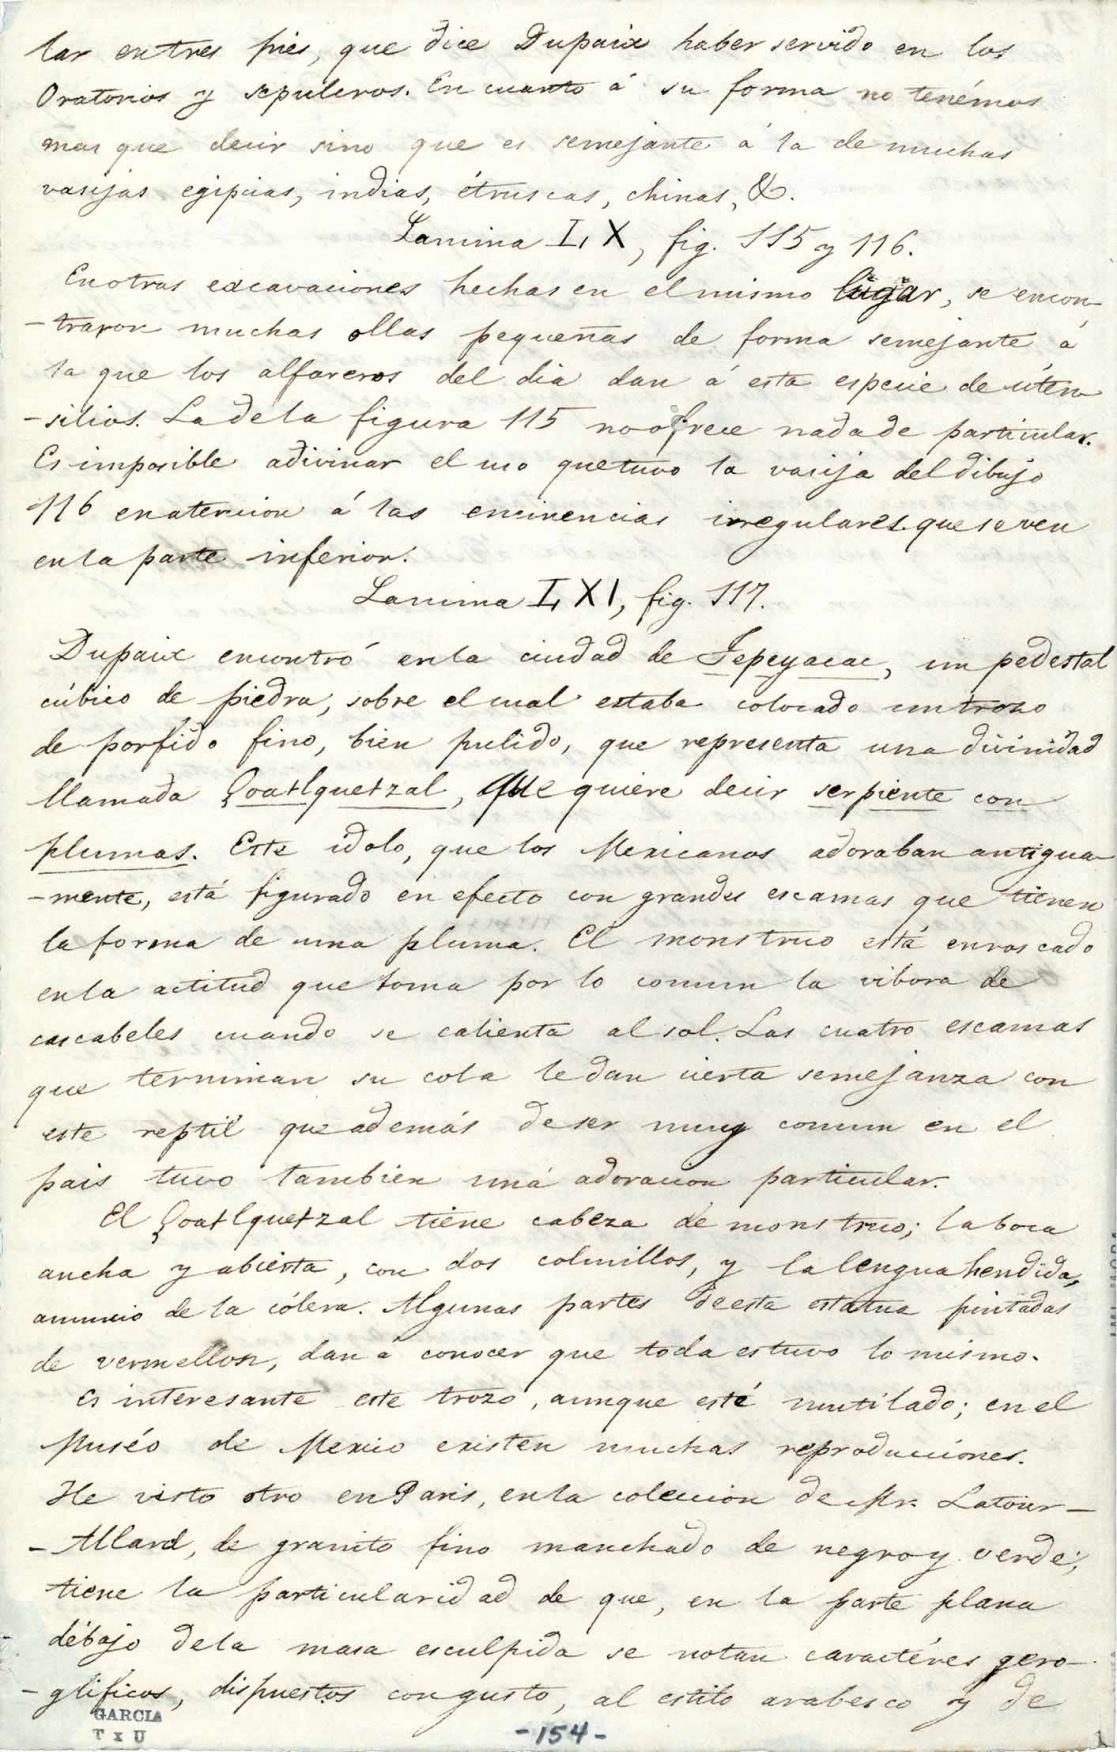 lar en tres pies, que dice Dupaix haber servido en los
Oratorios y sepulcros. En cuanto á su forma no tenémos
mas que decir sino que es semejante á la de muchas
vasijas egipcias, indias, étruscas, chinas, &.
Lamina LX, fig. 115 y 116.
En otras excavaciones hechas en el mismo lugar, se encon
-traron muchas ollas pequeñas de forma semejante á
la que los alfareros del dia dan á esta especie de úten
-silios. La de la figura 115 no ofrece nada de particular.
Es imposible adivinar el uso que tuvo la vasija del dibujo
116 en atencion á las eminencias irregulares que se ven
en la parte inferior.
Lamina LXI, fig. 117.
Dupaix encontró en la ciudad de Tepeyacac, un pedestal
cúbico de piedra, sobre el cual estaba colocado un trozo
de porfido fino, bien pulido, que representa una divinidad
llamada Çoatlquetzal, que quiere decir serpiente con
plumas. Este idolo, que los Mexicanos adoraban antigua
-mente, está figurado en efecto con grandes escamas que tienen
la forma de una pluma. El monstruo está enroscado
en la actitud que toma por lo comun la vibora de
cascabeles cuando se calienta al sol. Las cuatro escamas
que terminan su cola le dan cierta semejanza con
este reptil que además de ser muy comun en el
pais tuvo tambien una adoracion particular.
El Çoatlquetzal tiene cabeza de monstruo; la boca
ancha y abierta, con dos colmillos, y la lengua hendida,
anuncio de la cólera. Algunas partes de esta estatua pintadas
de vermellon, dan á conocer que toda estuvo lo mismo.
Es interesante este trozo, aunque esté mutilado; en el
Muséo de Mexico existen muchas reproducciones.
He visto otro en Paris, en la coleccion de Mr. Latour-
-Allard, de granito fino manchado de negro y verde;
tiene la particularidad de que, en la parte plana
débajo de la masa esculpida se notan caractéres gero-
-glificos, dispuestos con gusto, al estilo arabesco y de
GARCIA
T x U
-154-